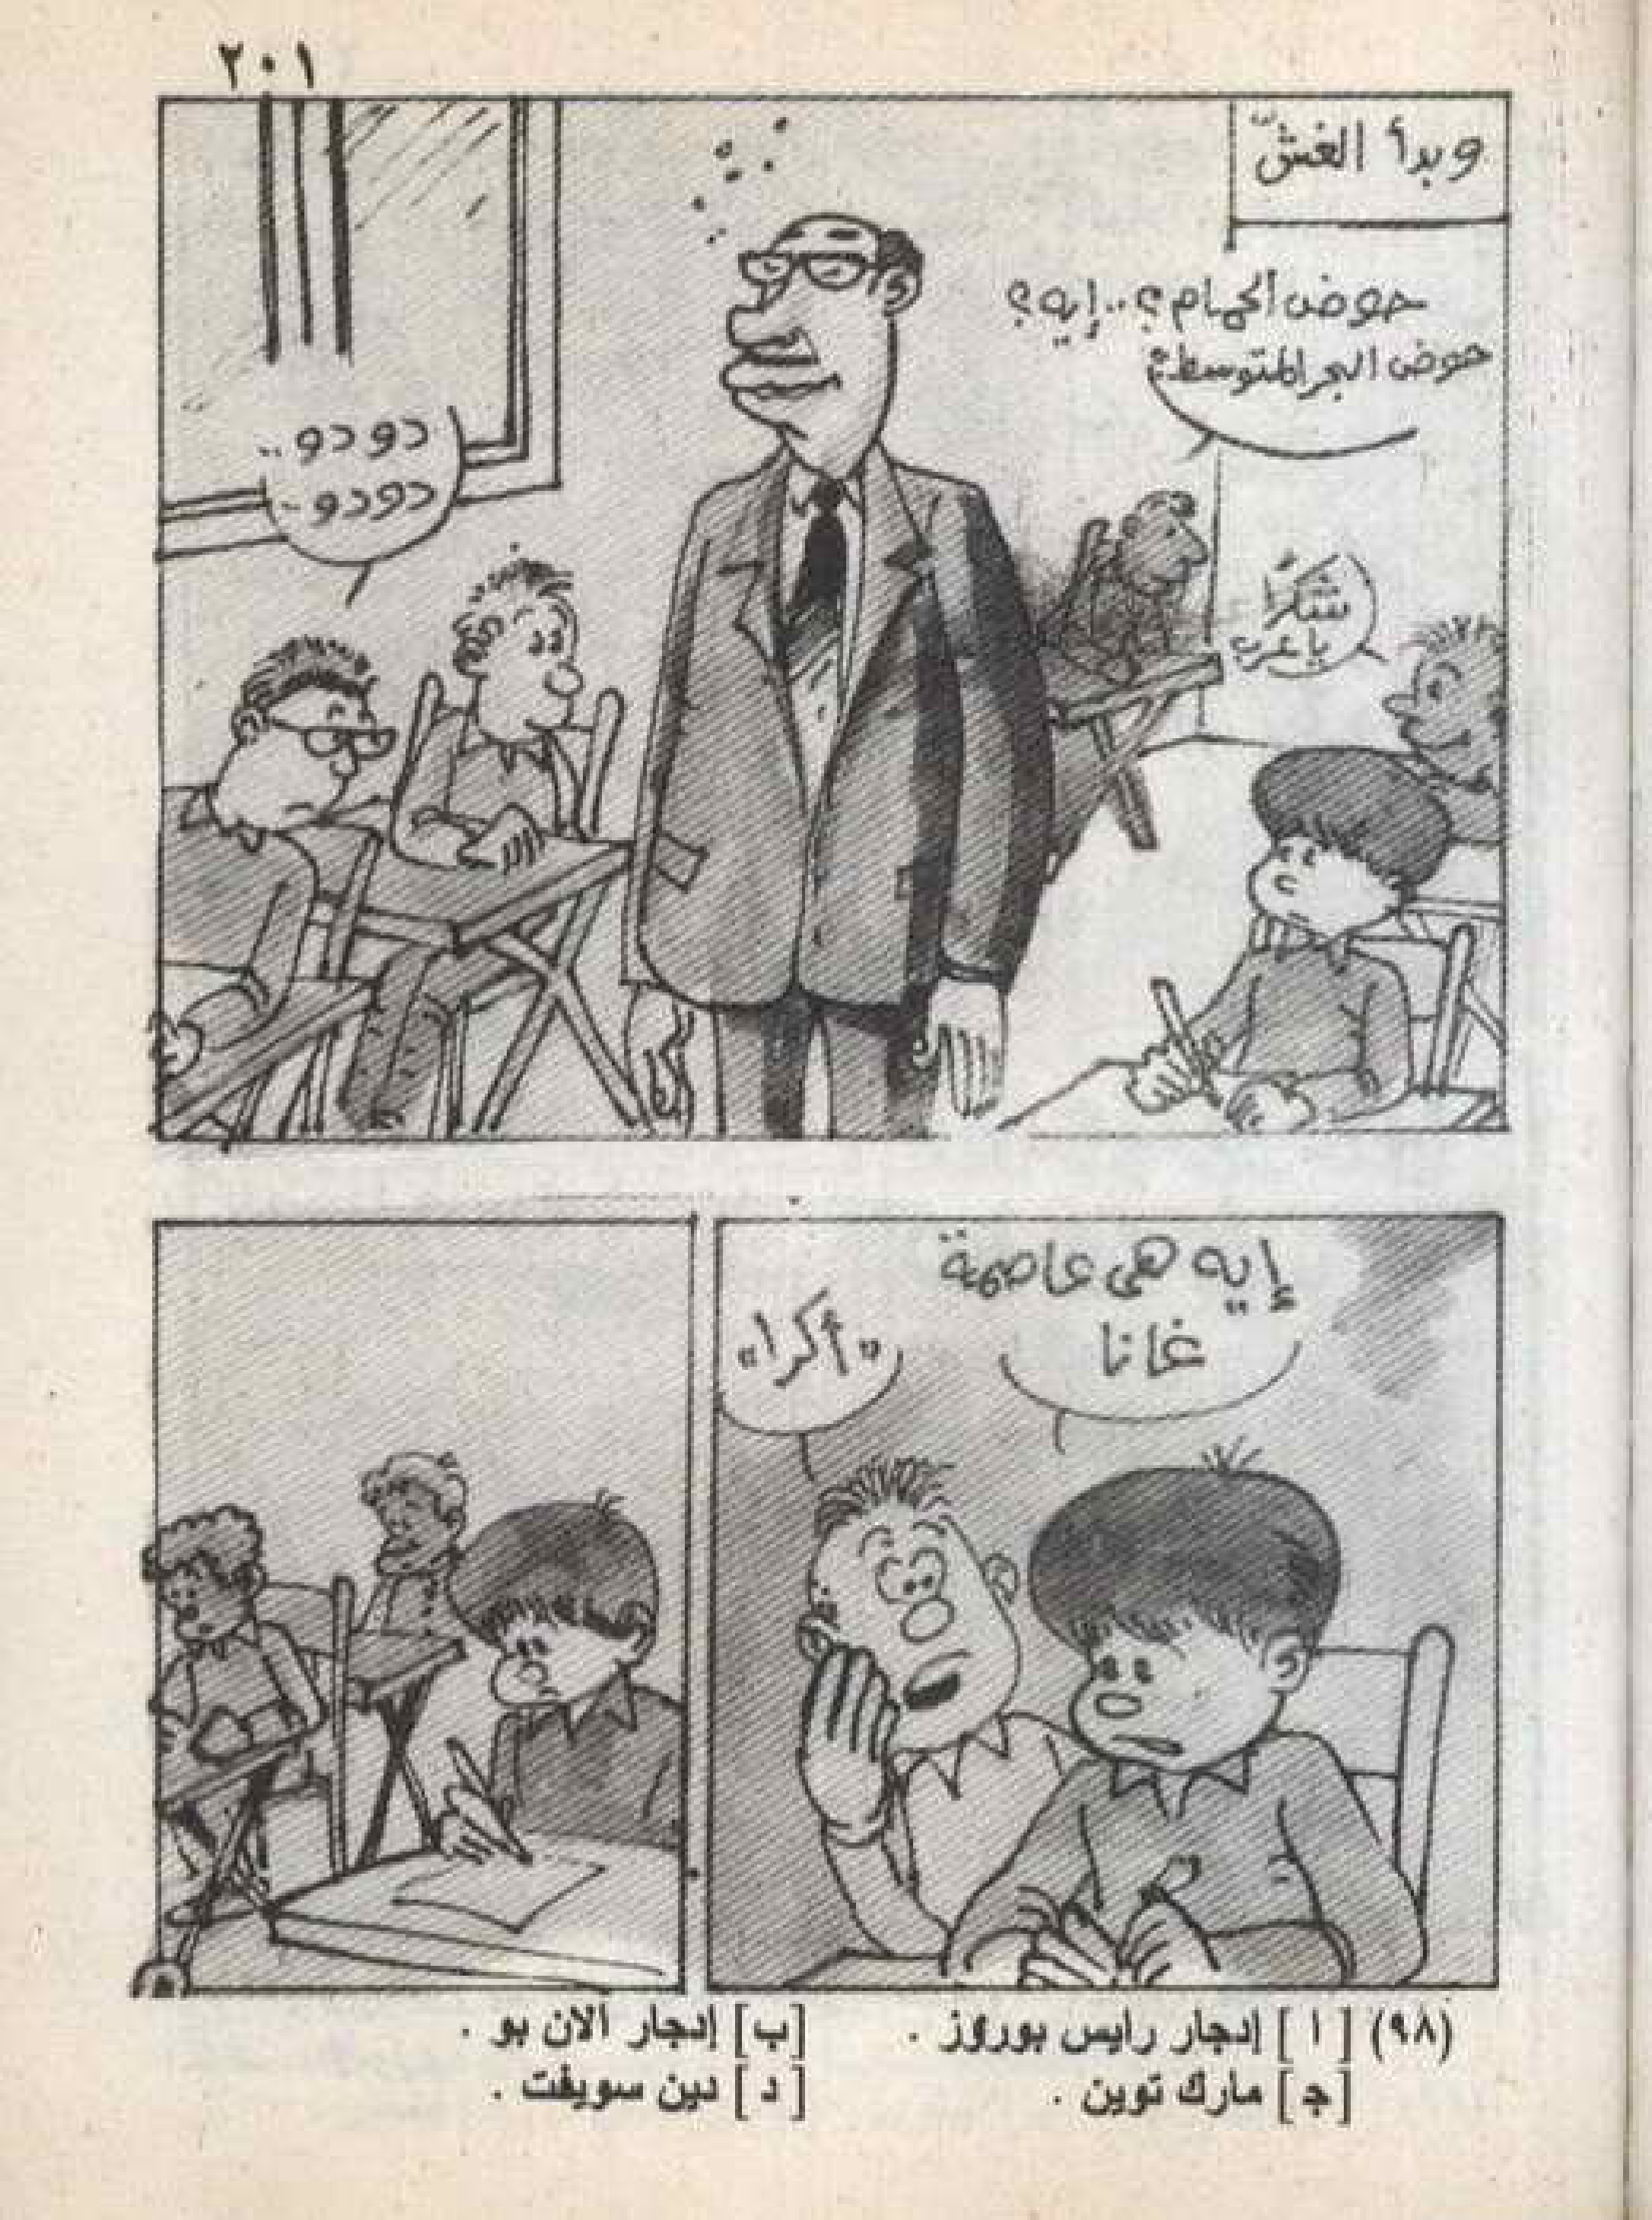 ٢٠١
وبدأ الغشّ
حوض الحمام؟..إيه؟
حوض البحر المتوسط؟
دودو..
دودو..
شكرًا
يا عرب
إيه هى عاصمة
غانا
"أكرا"
(٩٨) [ أ ] إدجار رايس بوروز .
[ب] إدجار آلان بو .
[جـ] مارك توين .
[ د ] دين سويفت .